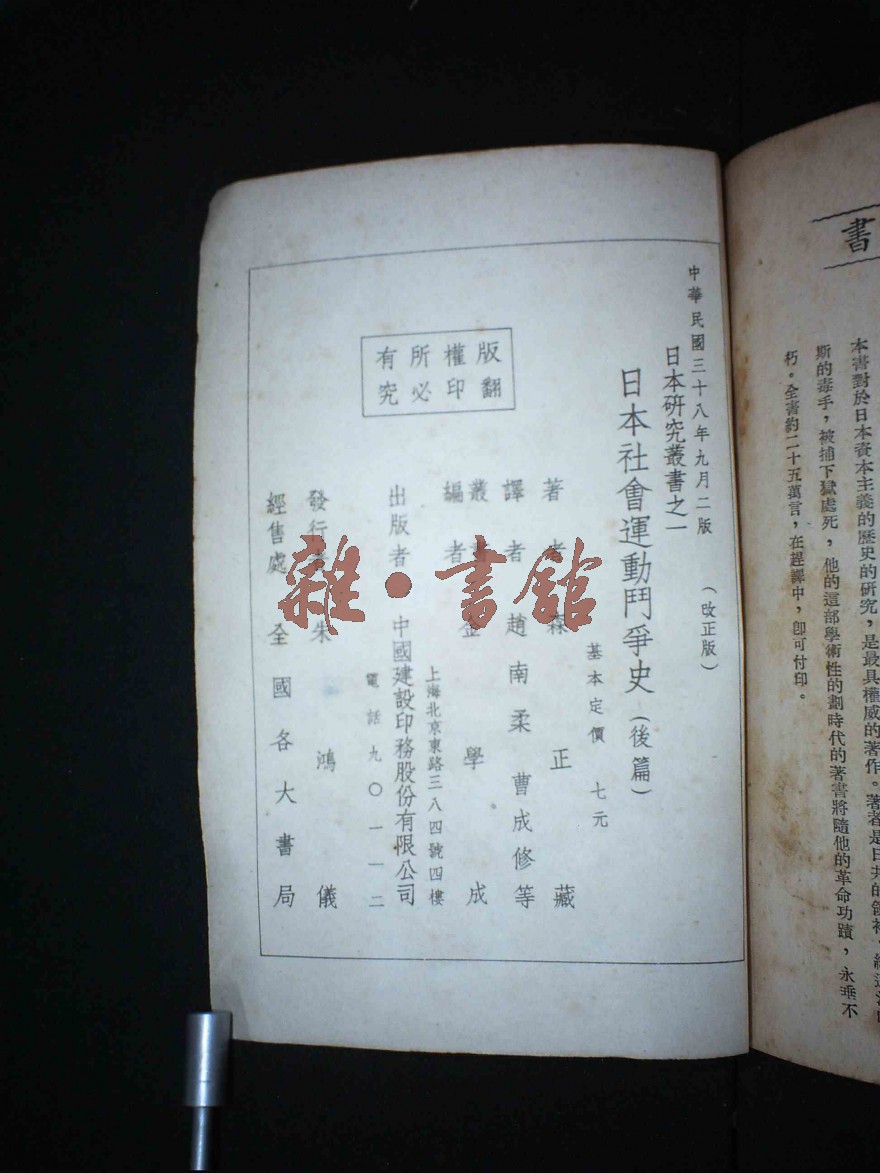 書
本書對於日本資本主義的歷史的研究，是最具權威的著作。著者是日共的領袖，
斯的毒手，被捕下獄處死，他的這部學術性的劃時代的著書將隨他的革命功蹟，永垂不
朽。全書約二十五萬言，在趕譯中，卽可付印。
中華民國三十八年九月二版 （改正版）
日本研究叢書之一
日本社會運動鬥爭史（後篇）
基本定價 七元
著者 森正藏
譯者 趙南柔 曹成修等
叢書編者 金學成
上海北京東路三八四號四樓
出版者 中國建設印務股份有限公司
電話九〇一一二
發行者 朱鴻儀
經售處 全國各大書局
版權所有
翻印必究
雜·書館